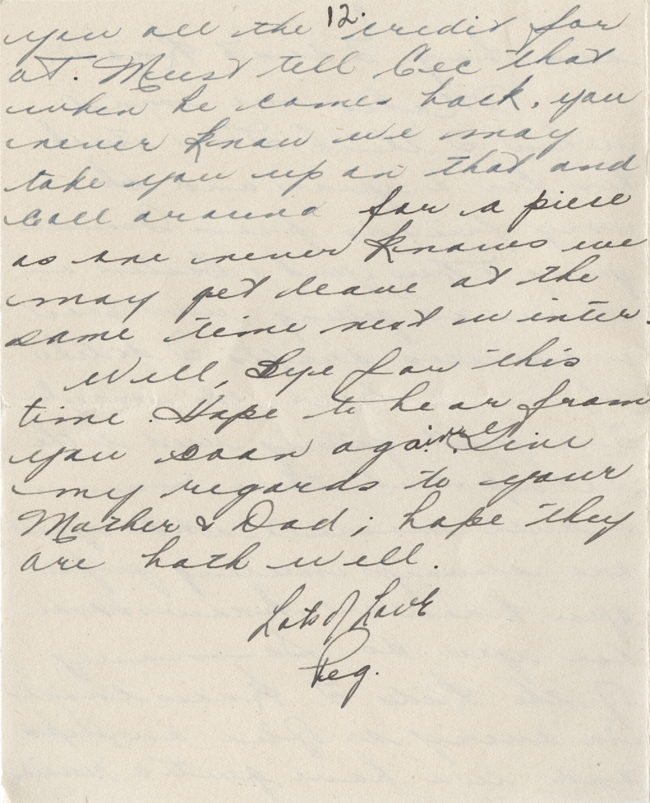 12.
you all the credit for
it. Must tell Cec that
when he comes back, you
never know we may
take you up on that and
call around for a piece
as one never knows we
may get leave at the
same time next winter.
Well, Bye for this
time. Hope to hear from
you soon again. Give
my regards to your
Mother & Dad; hope they
are both well.
Lots of Love
Reg.